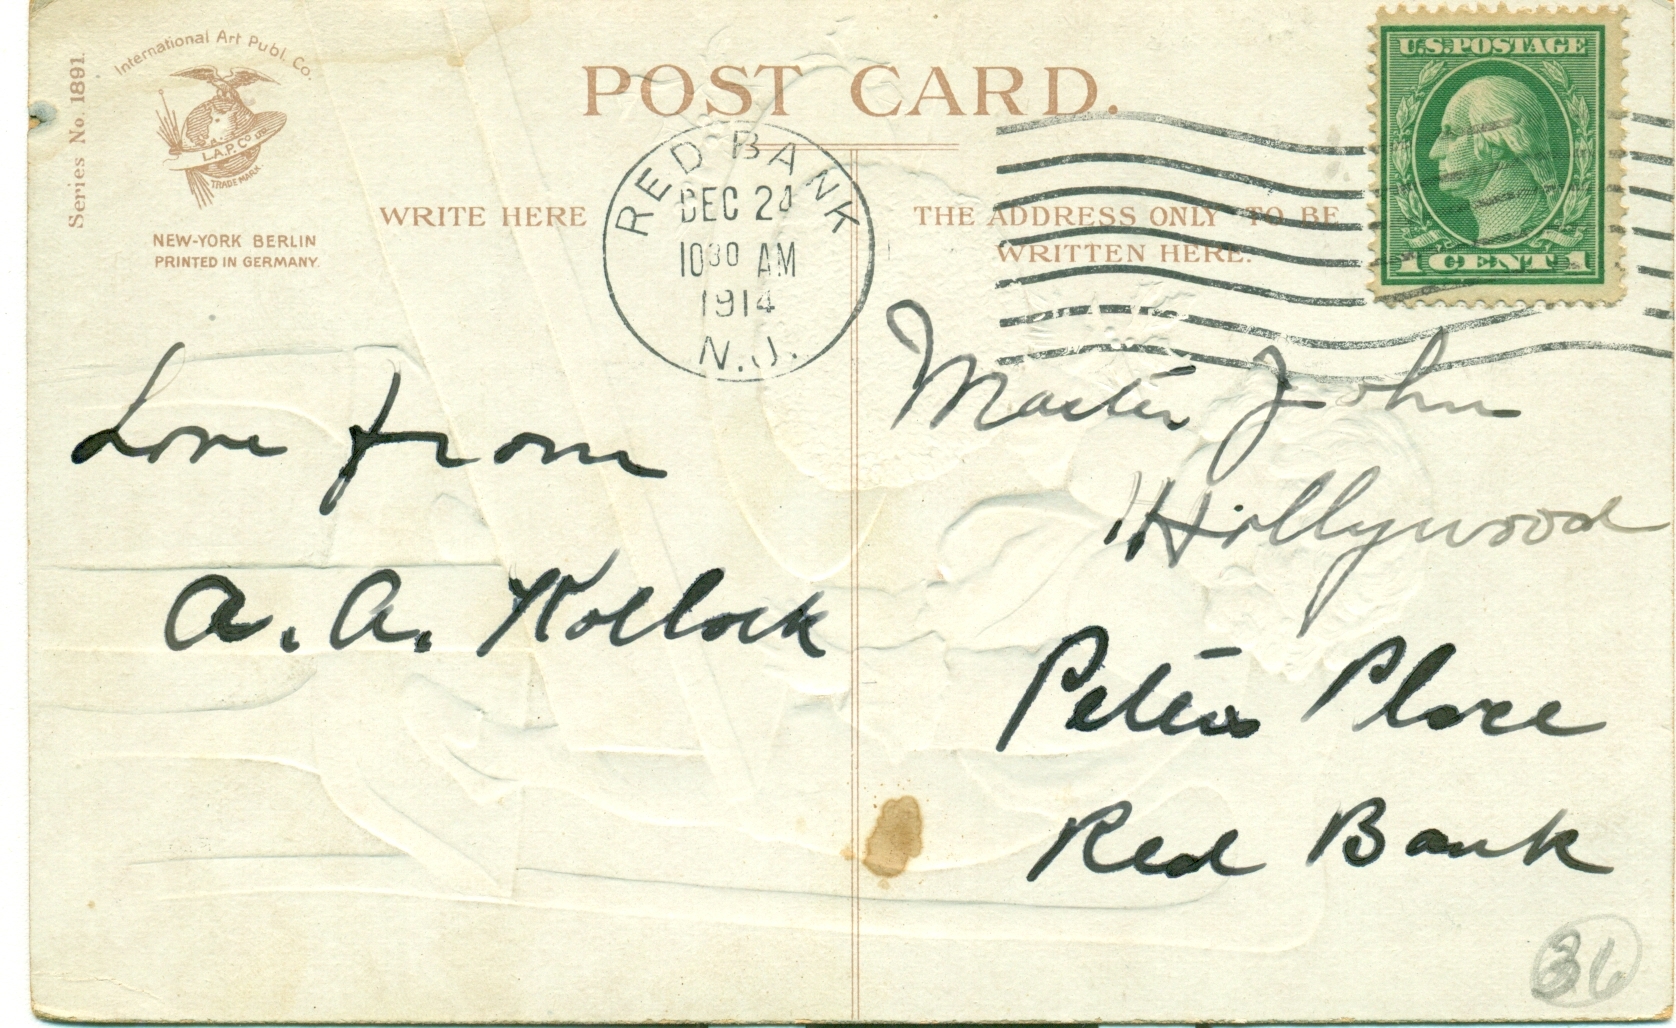 International Art Publ. Co.
Series No. 1891.
I.A.P. Co. LTD.
TRADE MARK
NEW-YORK BERLIN
PRINTED IN GERMANY.
POST CARD.
WRITE HERE
THE ADDRESS ONLY TO BE
WRITTEN HERE.
RED BANK
DEC 24
10 30 AM
1914
N.J.
U.S. POSTAGE
1 CENT 1
Love from
A. A. Kollock
Master John
Hillywood
Peters Place
Red Bank
36